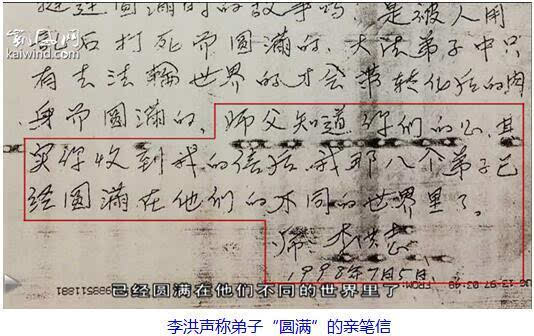 凯风网
kaiwind.com
圆满时的故事吗，是被人用
乱后打死而圆满的，大法弟子中只
有去法輪世界的才会带转化后的肉
身而圆满的，师父知道你们的心，其
实你收到我的信后，我那八个弟子已
经圆满在他们的不同的世界里了。
师 李洪志
1998年7月5日
已经圆满在他们不同的世界里了
李洪志称弟子“圆满”的亲笔信